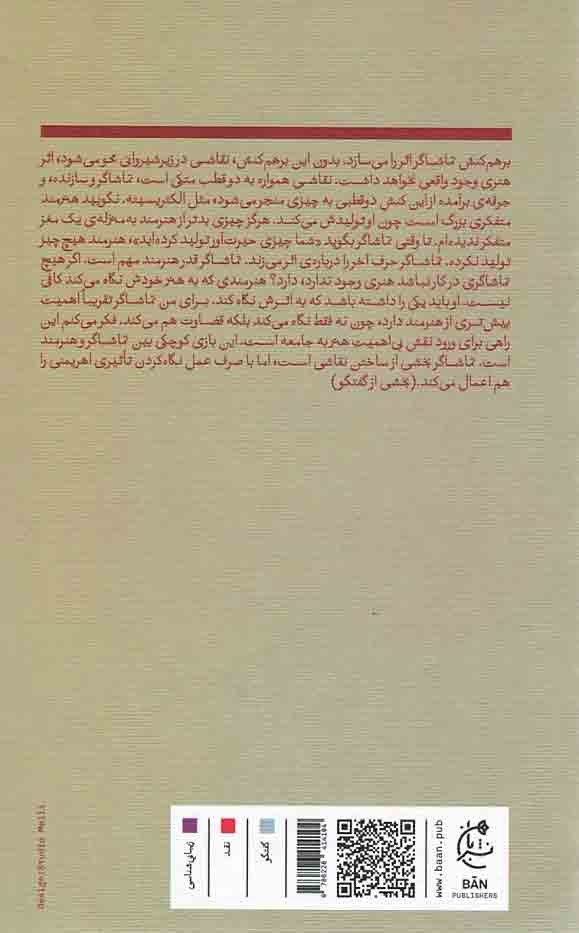 برهم‌کنش تماشاگر اثر را می‌سازد. بدون این برهم‌کنش، نقاشی در زیرشیروانی محو می‌شود، اثر
هنری وجود واقعی نخواهد داشت. نقاشی همواره به دو قطب متکی است، تماشاگر و سازنده، و
جرقه‌ی برآمده از این کنش دوقطبی به چیزی منجر می‌شود، مثل الکتریسیته. نگویید هنرمند
متفکری بزرگ است چون او تولیدش می‌کند. هرگز چیزی بدتر از هنرمند به‌منزله‌ی یک مغز
متفکر ندیده‌ام. تا وقتی تماشاگر بگوید «شما چیزی حیرت‌آور تولید کرده‌اید»، هنرمند هیچ چیز
تولید نکرده. تماشاگر حرف آخر را درباره‌ی اثر می‌زند. تماشاگر قدر هنرمند مهم است. اگر هیچ
تماشاگری در کار نباشد هنری وجود ندارد، دارد؟ هنرمندی که به هنر خودش نگاه می‌کند کافی
نیست. او باید یکی را داشته باشد که به اثرش نگاه کند. برای من تماشاگر تقریباً اهمیت
بیش‌تری از هنرمند دارد، چون نه فقط نگاه می‌کند بلکه قضاوت هم می‌کند. فکر می‌کنم این
راهی برای ورود نقش بی‌اهمیت هنر به جامعه است. این بازی کوچکی بین تماشاگر و هنرمند
است. تماشاگر بخشی از ساختن نقاشی است، اما با صرف عمل نگاه‌کردن تأثیری اهریمنی را
هم اعمال می‌کند. (بخشی از گفتگو)
زیبایی‌شناسی
نقد
گفتگو
www.baan.pub
بان
BĀN
PUBLISHERS